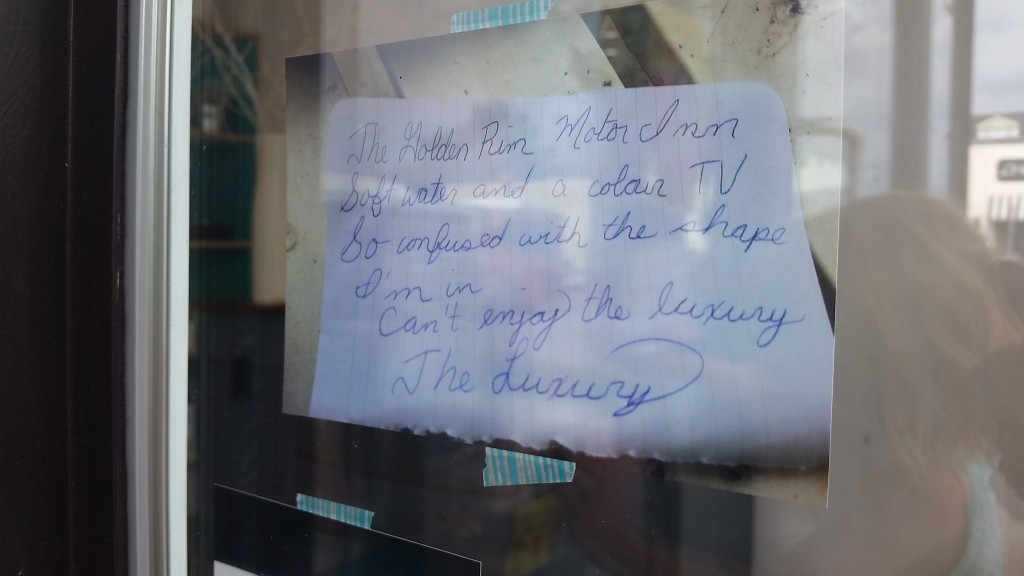 The Golden Rim Motor Inn
Soft water and a colour TV
So confused with the shape
I'm in
Can't enjoy the luxury
The Luxury